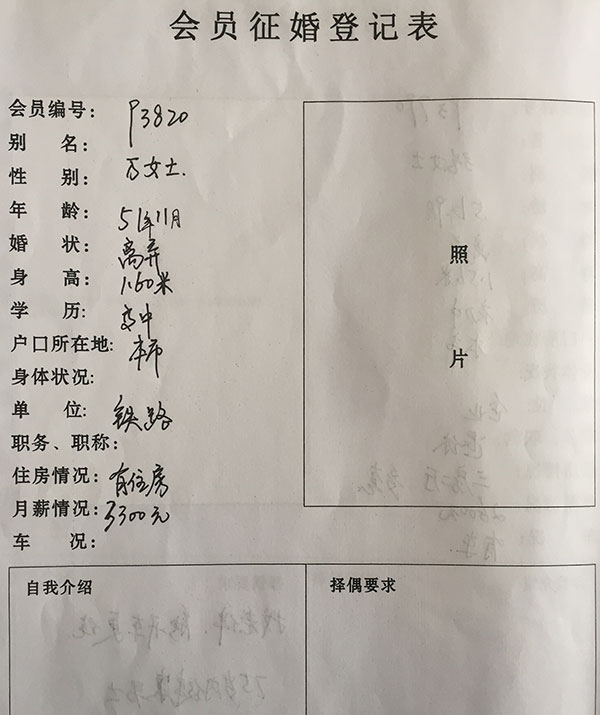 会员征婚登记表
会员编号: P3820
别 名:
性 别: 万女士.
年 龄: 51年11月
婚 状: 离异
身 高: 1.60米
学 历: 高中
户口所在地: 本市
身体状况:
单 位: 铁路
职务、职称:
住房情况: 有住房
月薪情况: 3300元
车 况:
照
片
自我介绍
择偶要求